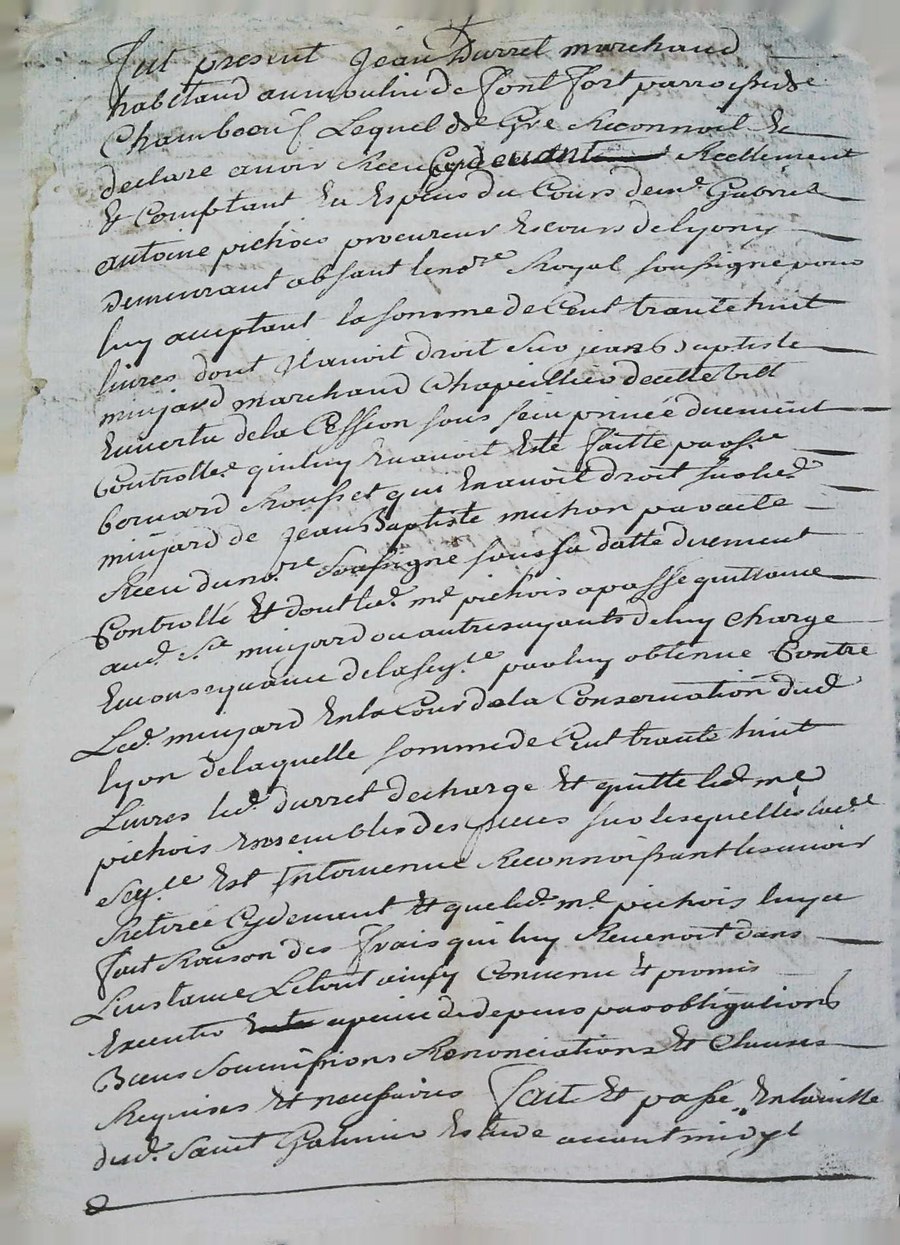 fut present Jean Durret marchand
habitand au moulin de Font Fort parroisse de
Chamboeuf Lequel de Gre Reconnoit &
declare avoir Receu Cydevant Reellement
& Comptant En Especes du Cours de mr. Gabriel
antoine pichois procureur Es cours de Lyon y
demeurant absant le nore Royal soussigne pour
luy acceptant la somme de Cent trante huit
livres dont Il avoit droit sur jean Baptiste
minjard marchand Chapellier de cette ville
En vertu de la Cession sous sein privée duement
Controllée. qui luy En avoit Esté faitte par sr.
bernard Rousset qui En avoit droit sur led.
minjard de Jean Baptiste michon par acte
Receu du nore Soussigne sous sa datte duement
Controllé Et dont led. me pichois a passé quittance
aud. Sr. minjard ou autres ayants de luy charge
En consequance de la Sey.te par luy obtenue Contre
Led. minjard En la Cour de la Conservation dud.
lyon de laquelle somme de Cent trante huit
Livres led. durret decharge Et quitte led. me
pichois Ensembles des pieces sur lesquelles lad.
Sey.te Est Intervenue Reconnoissant les avoir
Retirée Cydevant Et que led. me pichois luy a
fait Raison des frais qui luy Revenoit dans
Linstance Le tout ainsy Convenu Et promis
Executer a peine de depens par obligations
Biens Soumissions Renonciations Et Clauses
Requises Et necessaires Fait Et passé En la ville
dud. Saint Galmier Estude avant midy l